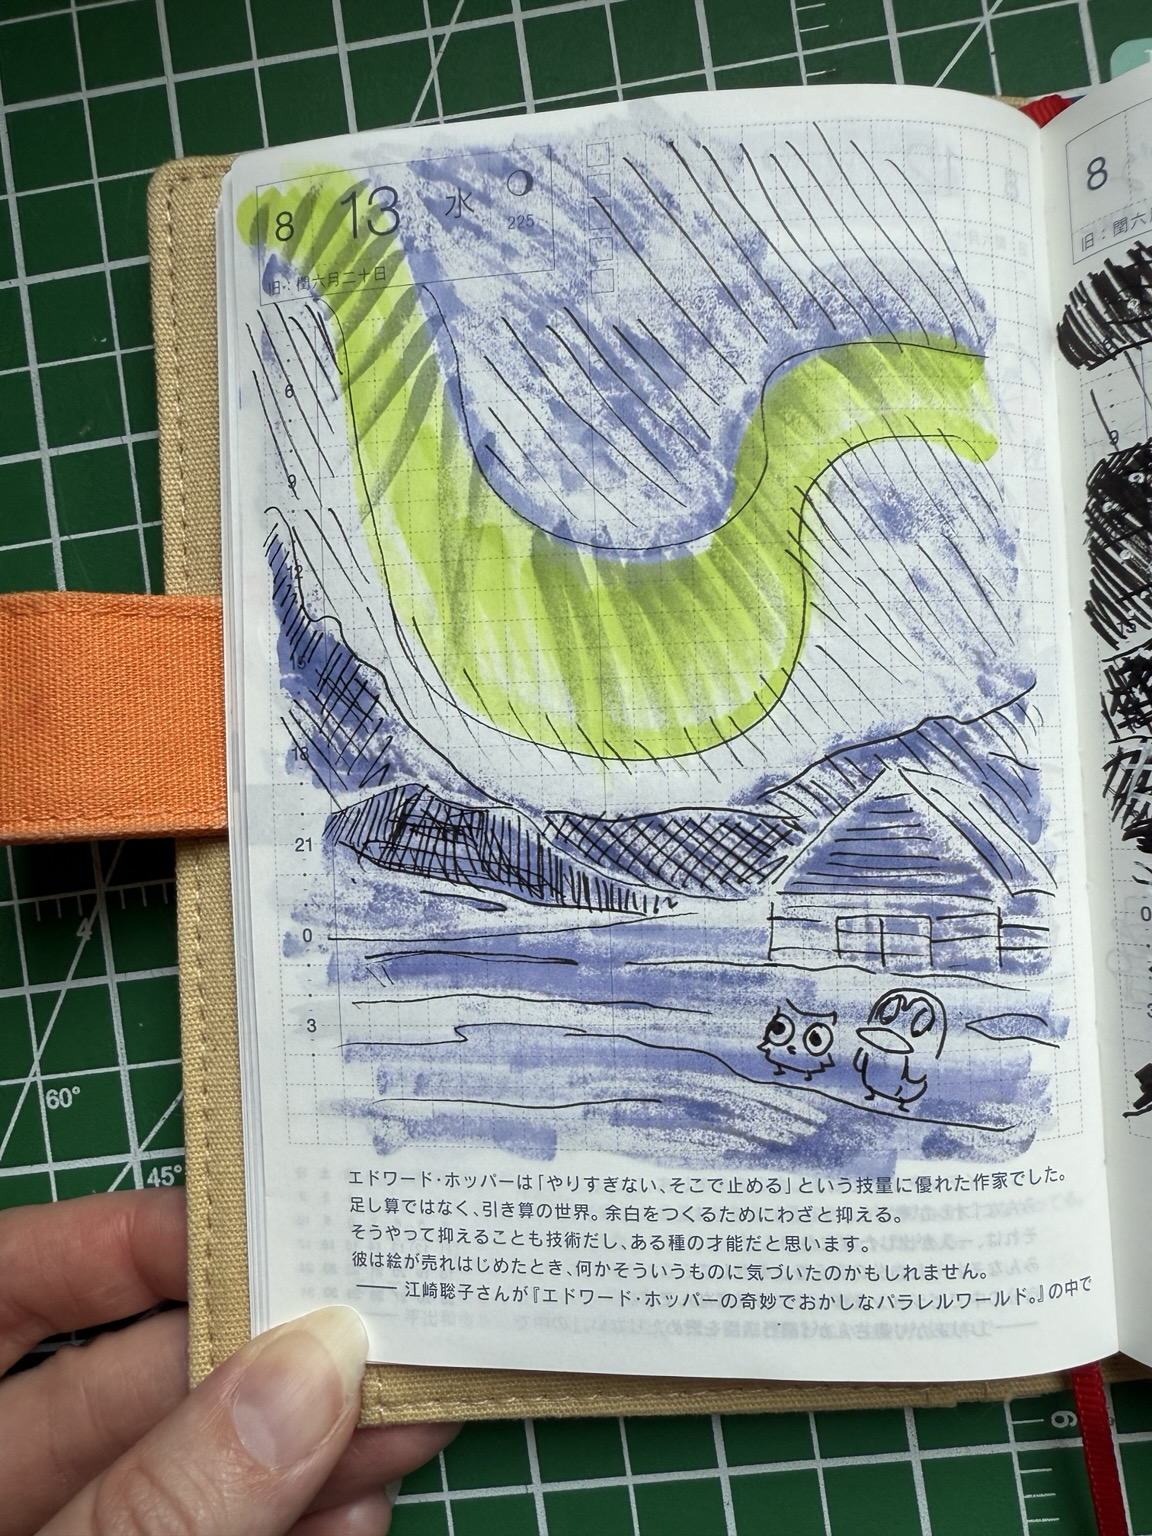 8 13 水
225
旧：閏六月二十日
6
9
12
15
18
21
0
3
エドワード・ホッパーは「やりすぎない、そこで止める」という技量に優れた作家でした。
足し算ではなく、引き算の世界。余白をつくるためにわざと抑える。
そうやって抑えることも技術だし、ある種の才能だと思います。
彼は絵が売れはじめたとき、何かそういうものに気づいたのかもしれません。
―― 江崎聡子さんが『エドワード・ホッパーの奇妙でおかしなパラレルワールド。』の中で
8
旧：閏六
9
15
0
4
60°
45°
6